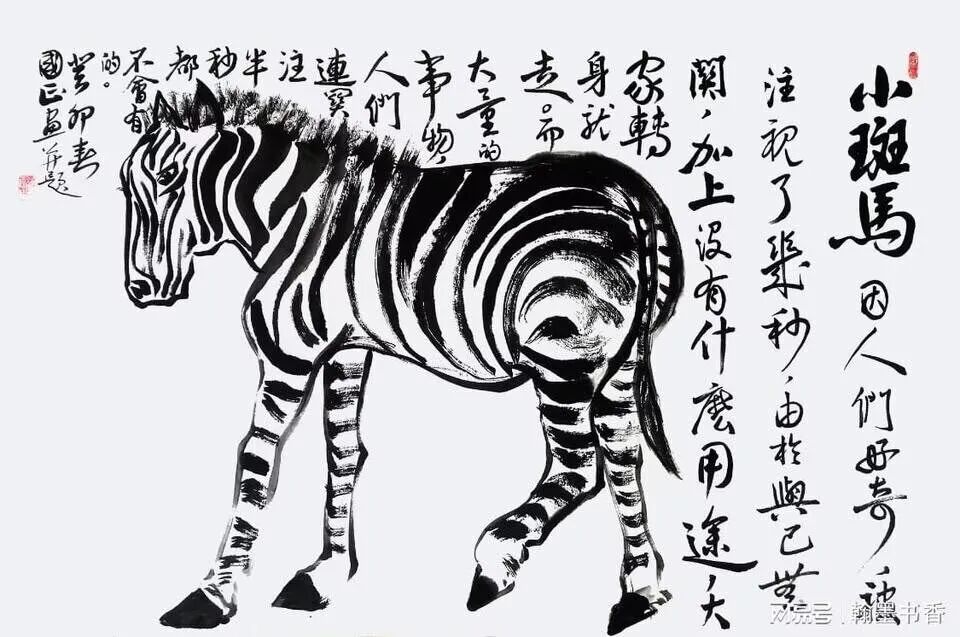 小斑馬 因人們好奇,
注視了幾秒,由於與己無
関,加上没有什麽用途,大
家轉
身就
走。而
大量的
事物,
人們
連
注
半
秒
都
不會有
的。
癸卯春
國正畫并題
网易号 | 翰墨书香